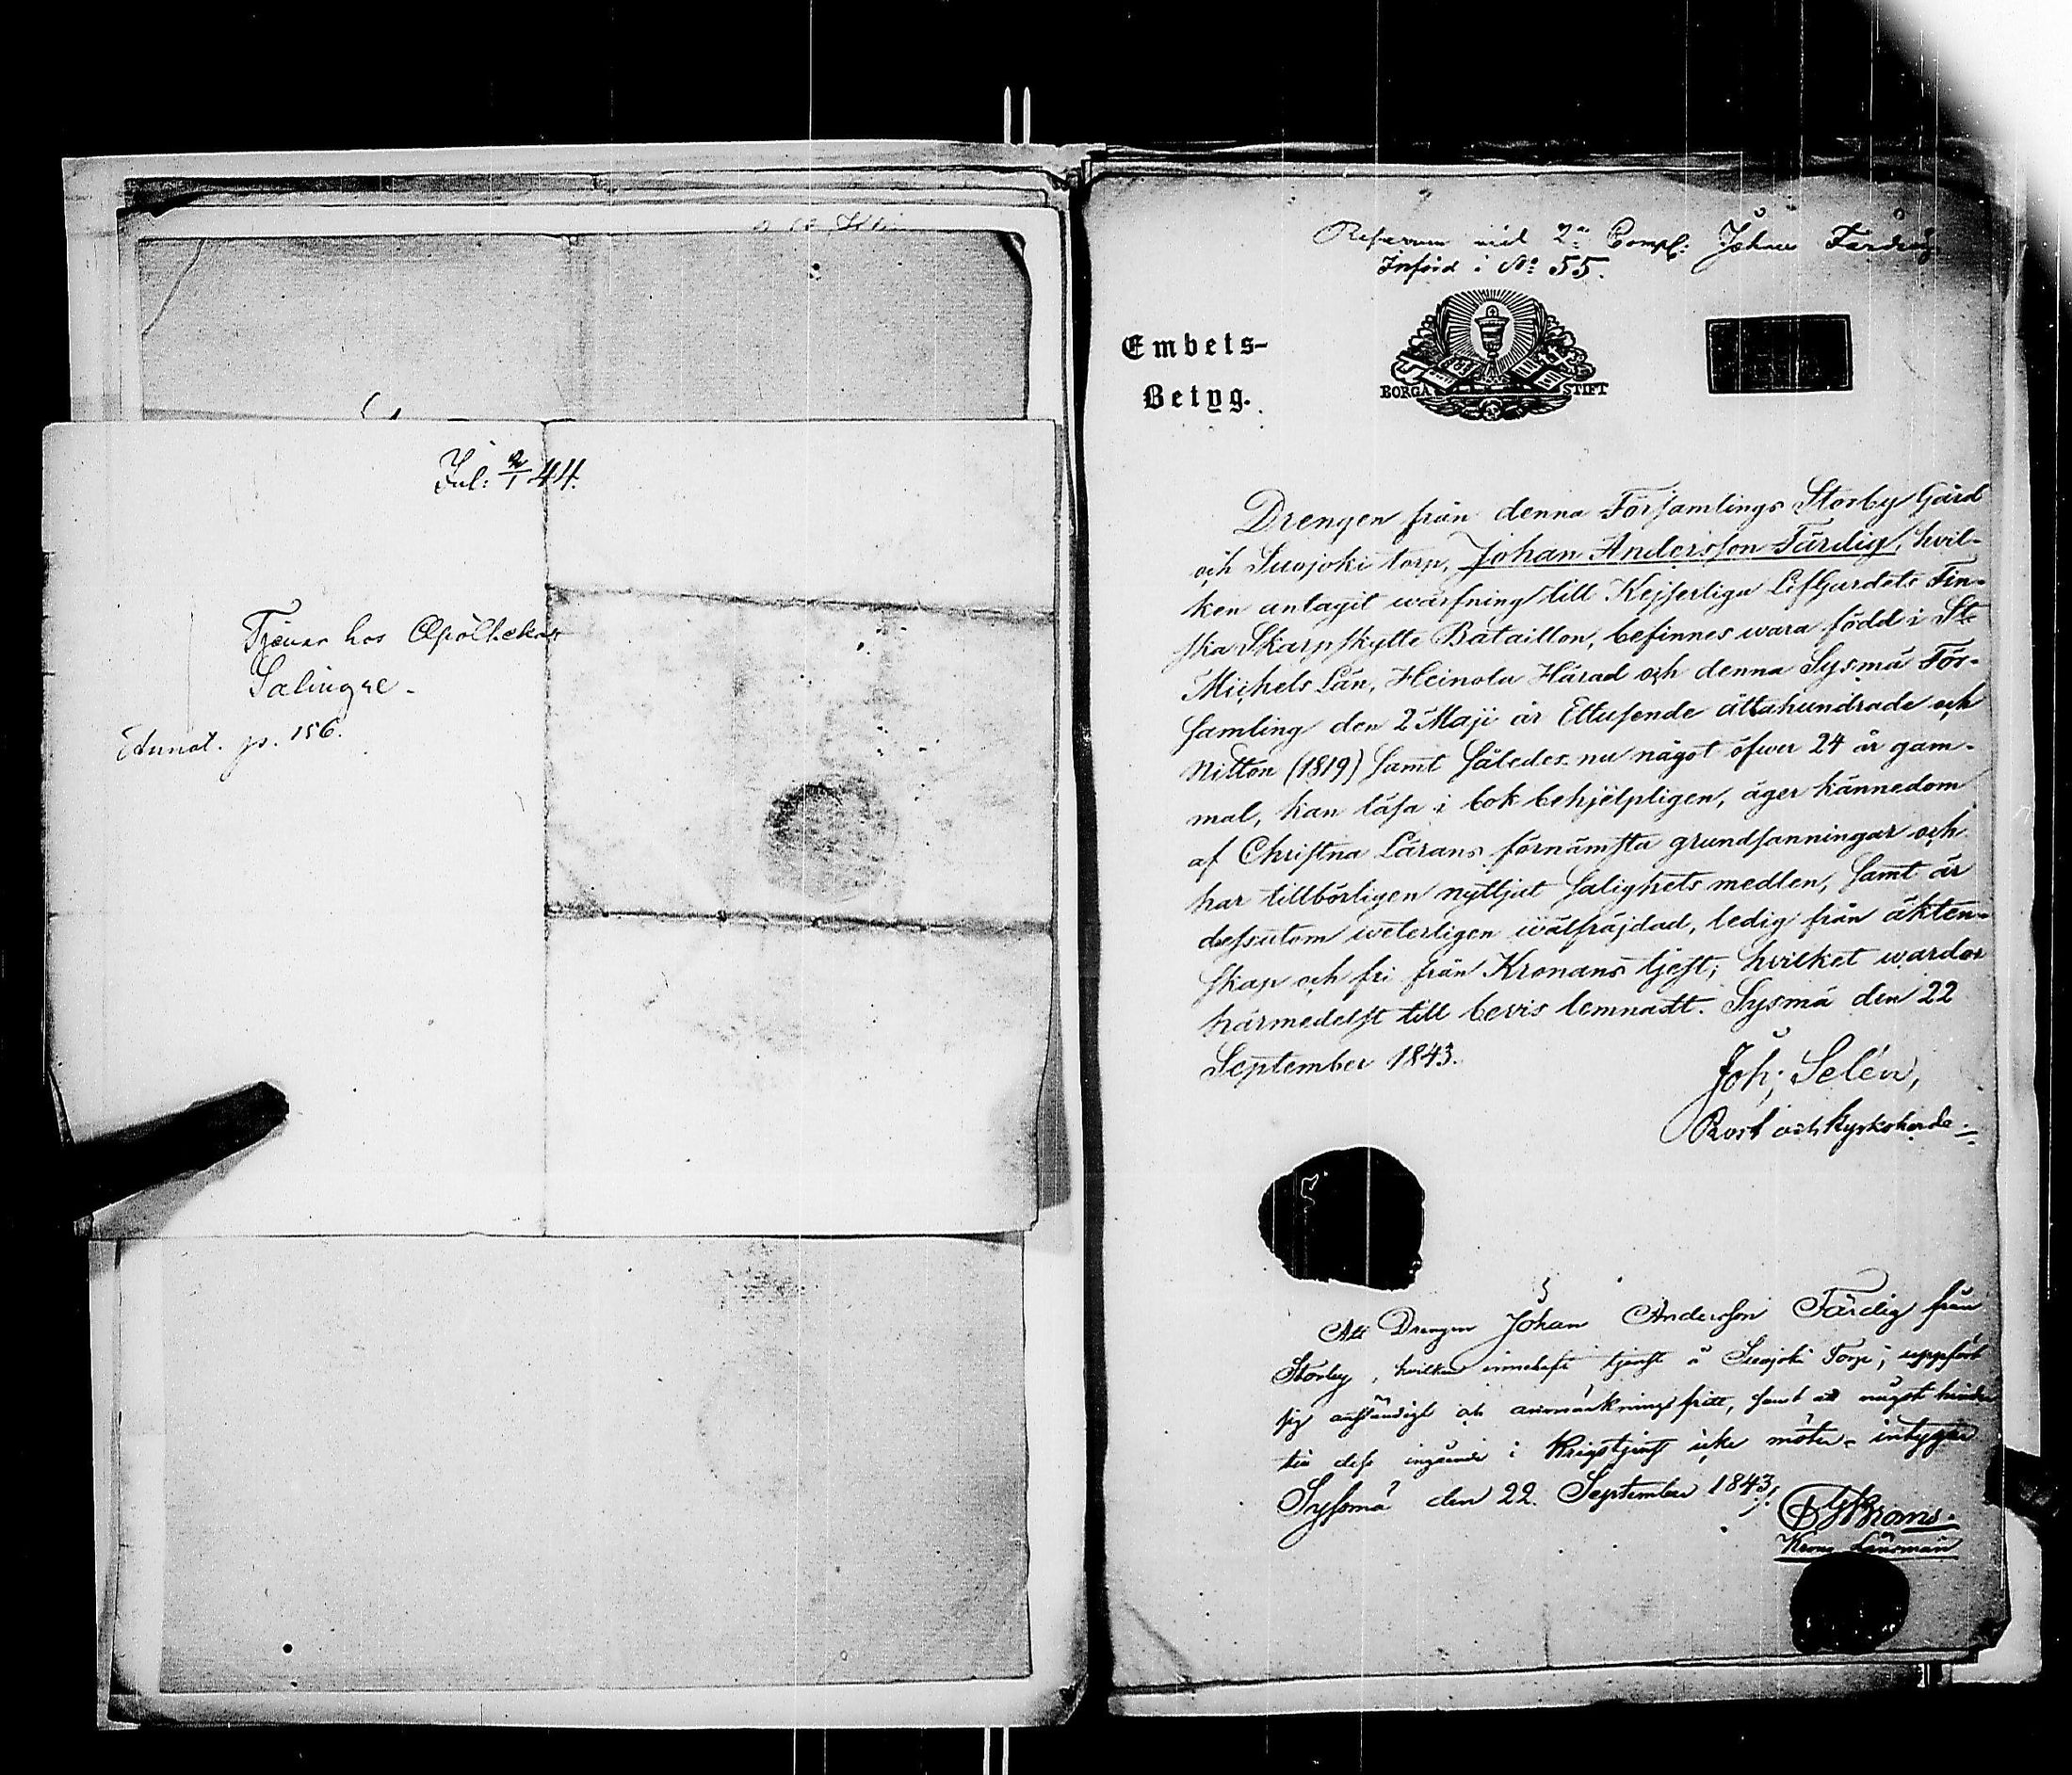 Jul: 2/1 44.
Tjenar hos Apothekar
Salingre.
Annot. p. 156.
vid 2a Comp: Johan Färdig
Införd i No 55.
Embets-
Betyg.
BORGÅ STIFT
Drengen från denna Församlings Storby Gård
och Suojoki torp, Johan Andersson Färdig, hvil-
ken antagit warfning till Kejserliga LifGardets Fin-
ska Skarpskytte Bataillon, befinnes wara född i St.
Michels Län, Heinola Härad och denna Sysmä För-
samling den 2 Maji år Ettusende åttahundrade och
Nitton (1819) samt således nu något öfwer 24 år gam-
mal, kan läsa i bok behjelpligen, äger kännedom
af Christna Lärans förnämsta grundsanningar och
har tillbörligen nyttjat salighets medlen, samt är
dessutom weterligen wälfräjdad, ledig från äkten-
skap och fri från Kronans tjest; hvilket warder
härmedelst till bevis lemnadt. Sysmä den 22
September 1843.
Joh; Selén,
Prost och Kyrkoherde.
Att Drengen Johan Andersson Färdig från
Storby, hvilken innehaft tjenst å Suojoki Torp, uppfört
sig anständigt och anmärkningsfritt, samt att något hinder
till dess ingående i Krigstjenst icke möter, intygar
Syssmä den 22 September 1843.
Krono Länsman